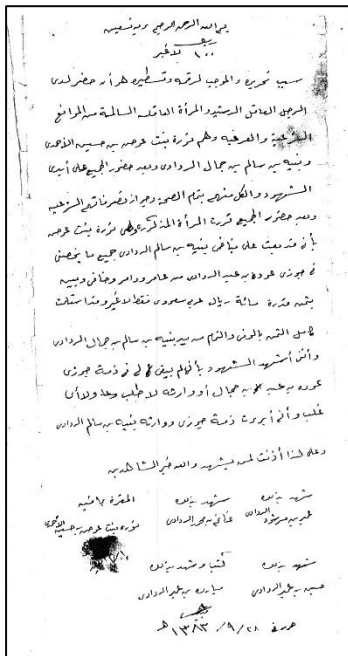 بسم الله الرحمن الرحيم وبه نستعين
١٠٠ لا غير
سبب تحريره والموجب لرقمه وتسطيره هو أنه حضر لدي
الرجل العاقل الرشيد والمرأة العاقلة السالمة من الموانع
الشرعية والعرفية وهم نورة بنت عوض بن حسين الأحمدي
وبنيه بن سالم بن جمال الردادي وبعد حضور الجميع على أيدي
الشهود والكل منهم بتمام الصحة وجواز تصرفاتهم الشرعية
وبعد حضور الجميع قررت المرأة المذكورة وهي نورة بنت عوض
بأن قد بعت على بنيه بن سالم الردادي جميع ما يخصني
في جوزي عوده بن عبد الردادي من عامر ودامر وخافي وبيين
بثمن قدره مائة ريال عربي سعودي فقط لا غير وقد استلمت
كامل الثمن بالوفى والتمام من يد بنيه بن سالم بن جمال الردادي
وأنني أستشهد الشهود بأنه لم يبق لي في ذمة جوزي
عوده بن عيد بن جمال أو وارثه لا طلب ولا دعوى ولا أي
طلب وأني أبريت ذمة جوزي ووارثه بنيه بن سالم الردادي
وعلى هذا أذنت لمن يشهد والله خير الشاهدين
شهد بذلك
شهد بذلك
المقرة بما فيه
الردادي
الردادي
نورة بنت عوض بن حسين الأحمدي
شهد بذلك
كتب وشهد بذلك
حسين بن عيد الردادي
مبارك بن عيد الردادي
حرر في ٢٨ / ٩ / ١٣٨٣ هـ